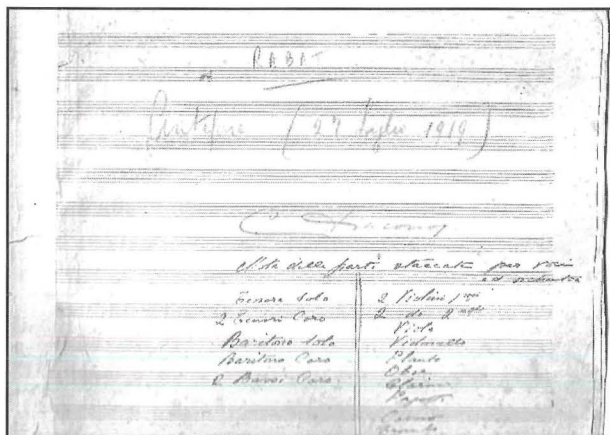 RABA
(27 luglio 1919)
Giacomo
Nota delle parti staccate per voci
ed orchestra
Tenore Solo
2 Tenori Coro
Baritono Solo
Baritono Coro
2 Bassi Coro
2 Violini 1mi
2 do 2ndi
Viola
Violoncello
Flauto
Oboe
Clarino
Corno